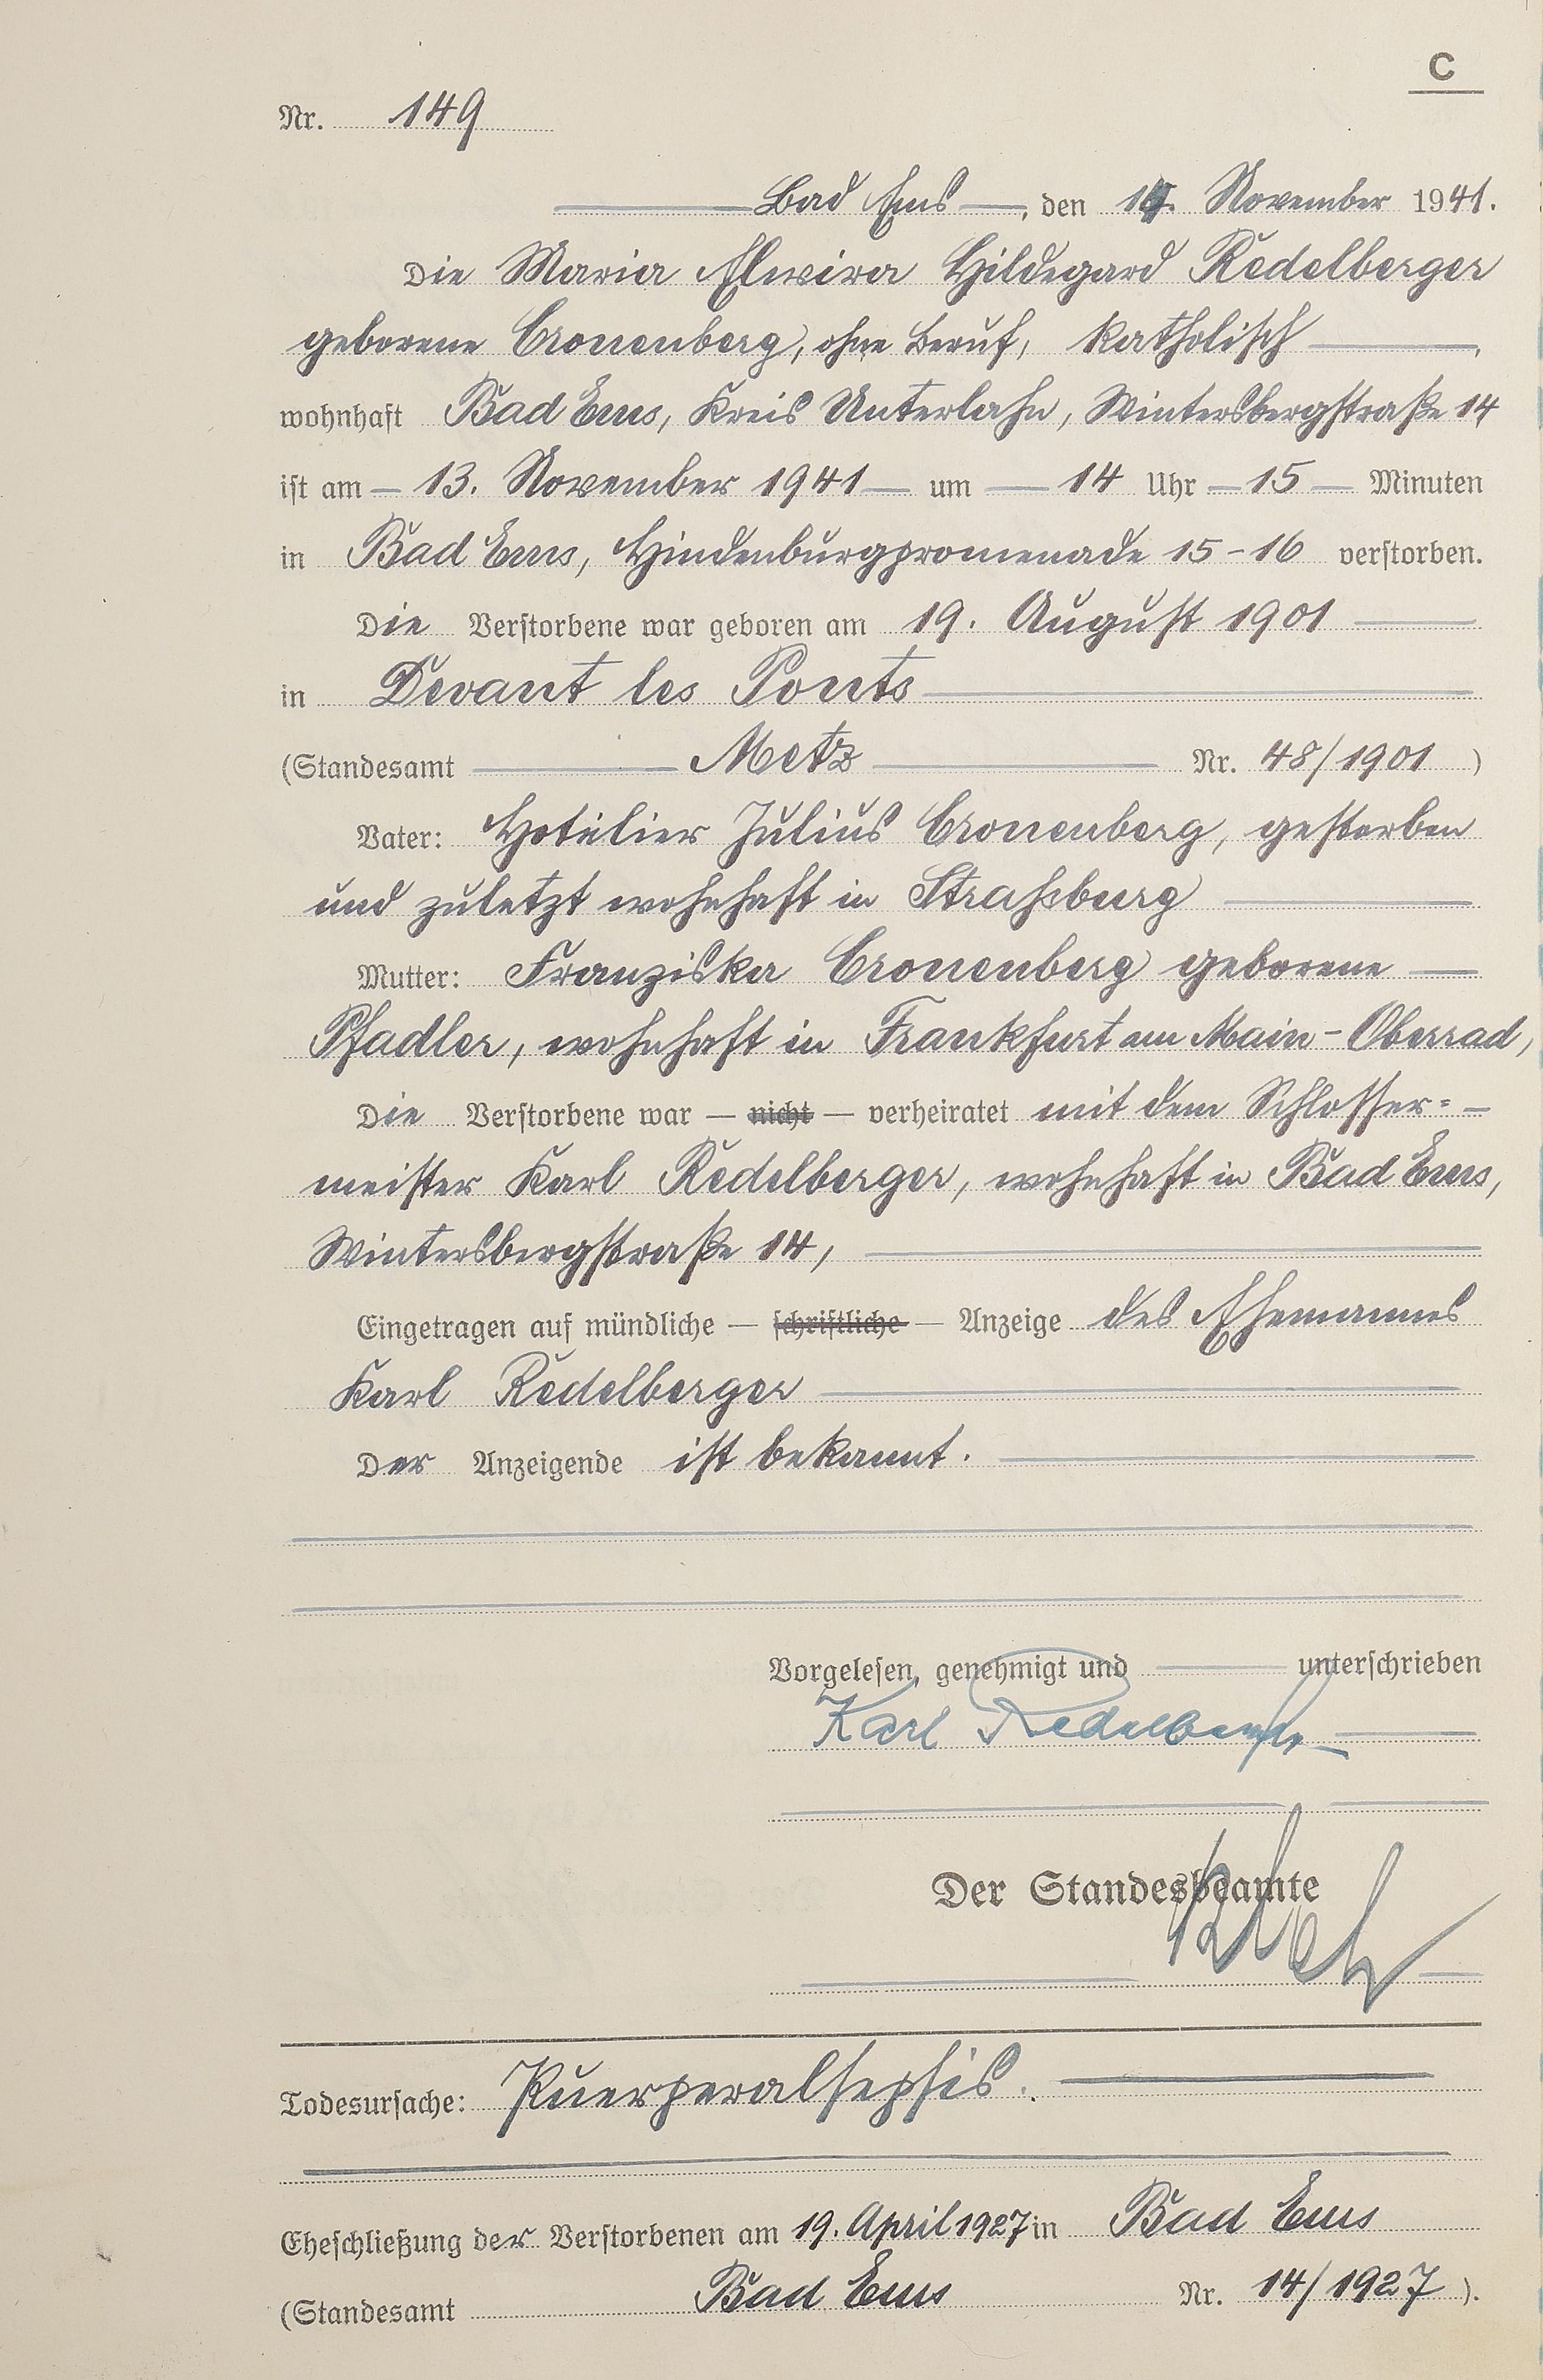 C
Nr. 149
Bad Ems, den 14. November 1941.
Die Maria Elwira Hildegard Redelberger
geborene Cronenberg, ohne Beruf, katholisch,
wohnhaft Bad Ems, Kreis Unterlahn, Wintersbergstraße 14
ist am – 13. November 1941 – um – 14 Uhr – 15 – Minuten
in Bad Ems, Hindenburgpromenade 15-16 verstorben.
Die Verstorbene war geboren am 19. August 1901
in Devant les Ponts
(Standesamt Metz Nr. 48/1901)
Vater: Hotelier Julius Cronenberg, gestorben
und zuletzt wohnhaft in Strahsburg
Mutter: Franziska Cronenberg geborene
Pfadler, wohnhaft in Frankfurt am Main-Oberrad,
Die Verstorbene war – nicht – verheiratet mit dem Schlosser=
meister Karl Redelberger, wohnhaft in Bad Ems,
Wintersbergstraße 14,
Eingetragen auf mündliche – schriftliche – Anzeige des Ehemannes
Karl Redelberger
Der Anzeigende ist bekannt.
Vorgelesen, genehmigt und unterschrieben
Karl Redelberger
Der Standesbeamte
Todesursache: Puerperalsepsis.
Eheschließung der Verstorbenen am 19. April 1927 in Bad Ems
(Standesamt Bad Ems Nr. 14/1927).